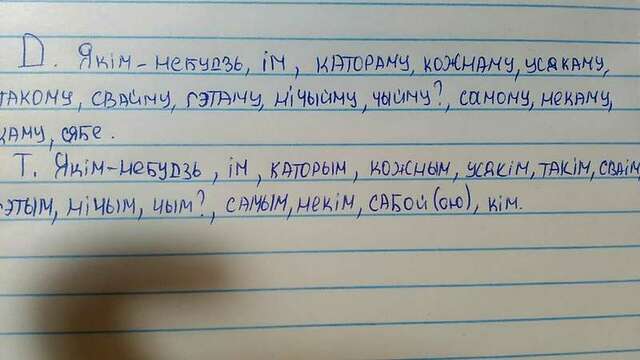 D. Якім-небудзь, ім, катораму, кожнаму, усякаму,
такому, свайму, гэтаму, нічыйму, чыйму?, самому, некаму,
каму, сябе.
Т. Якім-небудзь, ім, каторым, кожным, усякім, такім, сваім
гэтым, нічым, чым?, самым, некім, сабой(ою), кім.